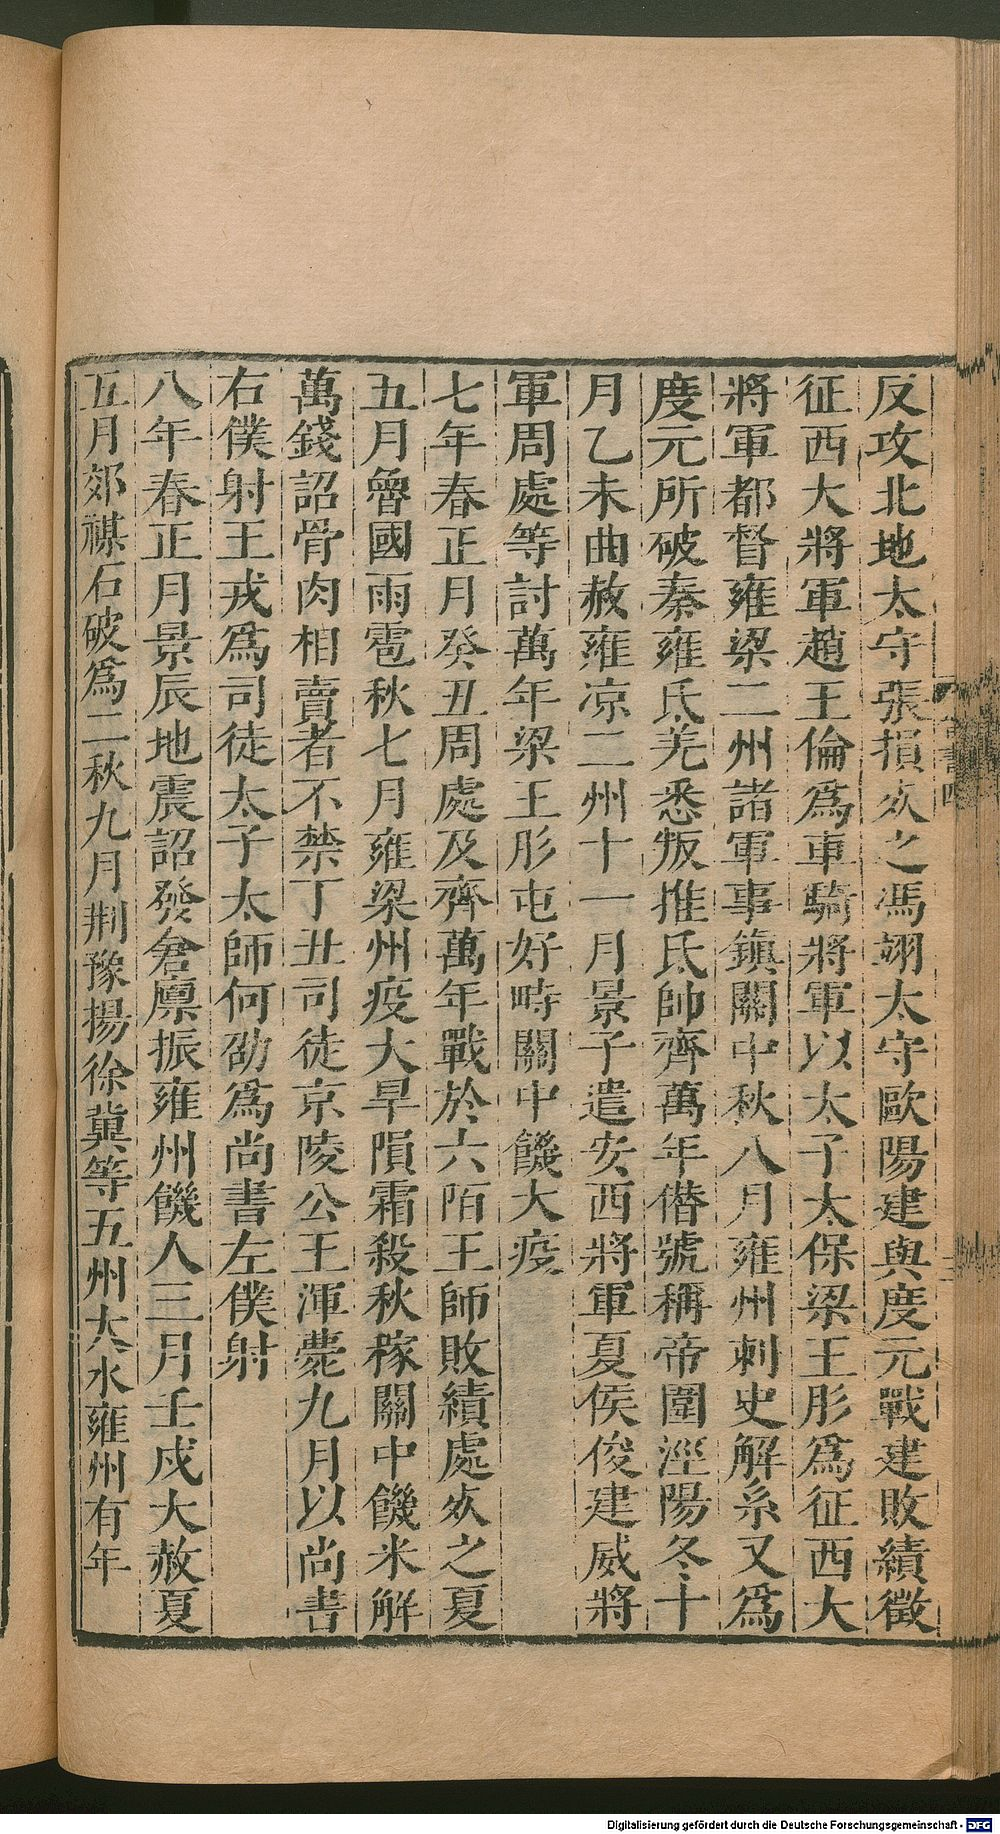 反攻北地太守張損死之馮翊太守歐陽建與度元戰建敗績徵
征西大將軍趙王倫爲車騎將軍以太子太保梁王肜爲征西大
將軍都督雍梁二州諸軍事鎮關中秋八月雍州刺史解系又爲
度元所破秦雍氐羌悉叛推氐帥齊萬年僭號稱帝圍涇陽冬十
月乙未曲赦雍凉二州十一月景子遣安西將軍夏侯俊建威將
軍周處等討萬年梁王肜屯好畤關中饑大疫
七年春正月癸丑周處及齊萬年戰於六陌王師敗績處死之夏
五月魯國雨雹秋七月雍梁州疫大旱隕霜殺秋稼關中饑米斛
萬錢詔骨肉相賣者不禁丁丑司徒京陵公王渾薨九月以尚書
右僕射王戎爲司徒太子太師何劭爲尚書左僕射
八年春正月景辰地震詔發倉廩振雍州饑人三月壬戌大赦夏
五月郊禖石破爲二秋九月荆豫揚徐冀等五州大水雍州有年
Digitalisierung gefördert durch die Deutsche Forschungsgemeinschaft - DFG